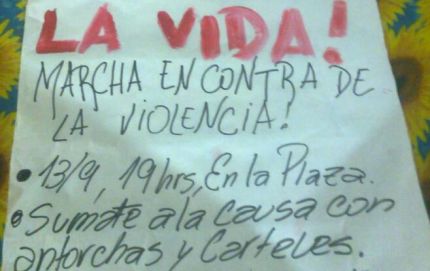 LA VIDA!
MARCHA EN CONTRA DE
LA VIOLENCIA!
• 13/9, 19hrs, En la Plaza.
• Sumate a la causa con
antorchas y Carteles.